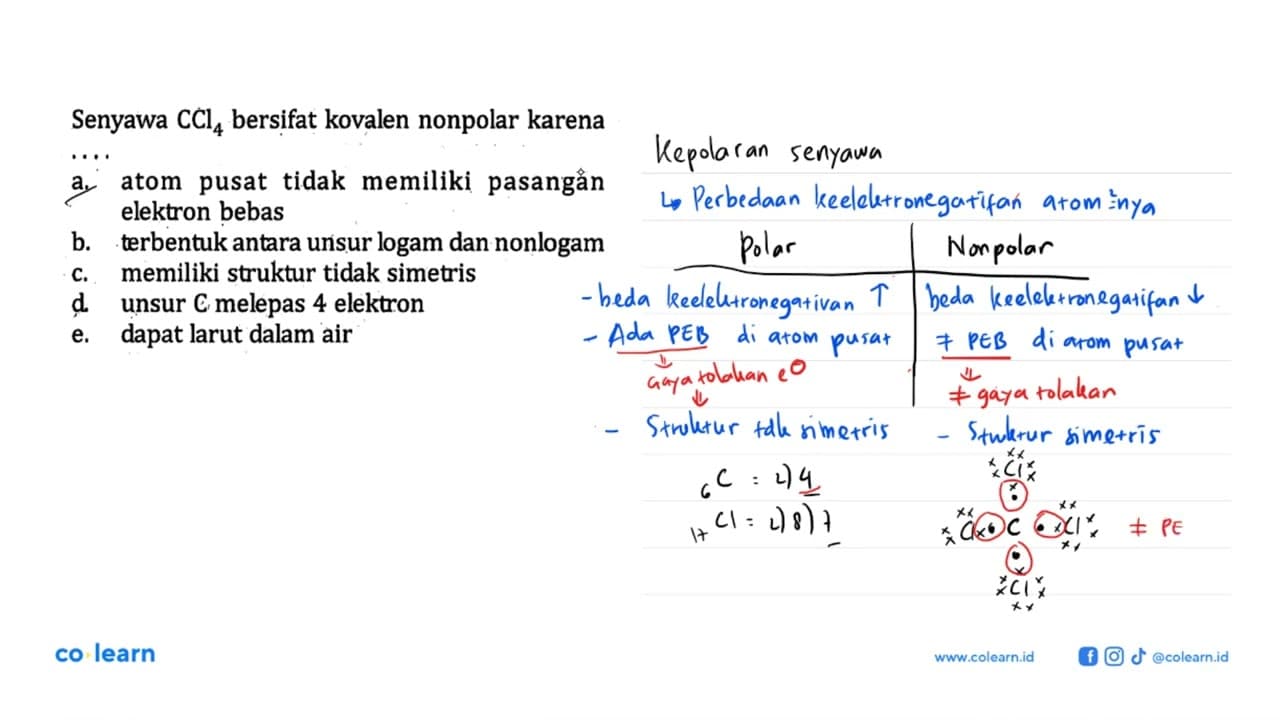 Senyawa CCl4 bersifat kovalen nonpolar karena
....
a. atom pusat tidak memiliki pasangan
elektron bebas
b. terbentuk antara unsur logam dan nonlogam
c. memiliki struktur tidak simetris
d. unsur C melepas 4 elektron
e. dapat larut dalam air
Kepolaran senyawa
↳ Perbedaan keelektronegatifan atom²nya
Polar
Nonpolar
- beda keelektronegativan ↑
beda keelektronegatifan ↓
- Ada PEB di atom pusat
≠ PEB di atom pusat
⇓
⇓
Gaya tolakan e⊖
≠ gaya tolakan
⇓
- Struktur tdk simetris
- Stuktur simetris
6C = 2) 4
17Cl = 2) 8) 7
Cl
Cl C Cl ≠ PE
Cl
co learn
www.colearn.id @colearn.id